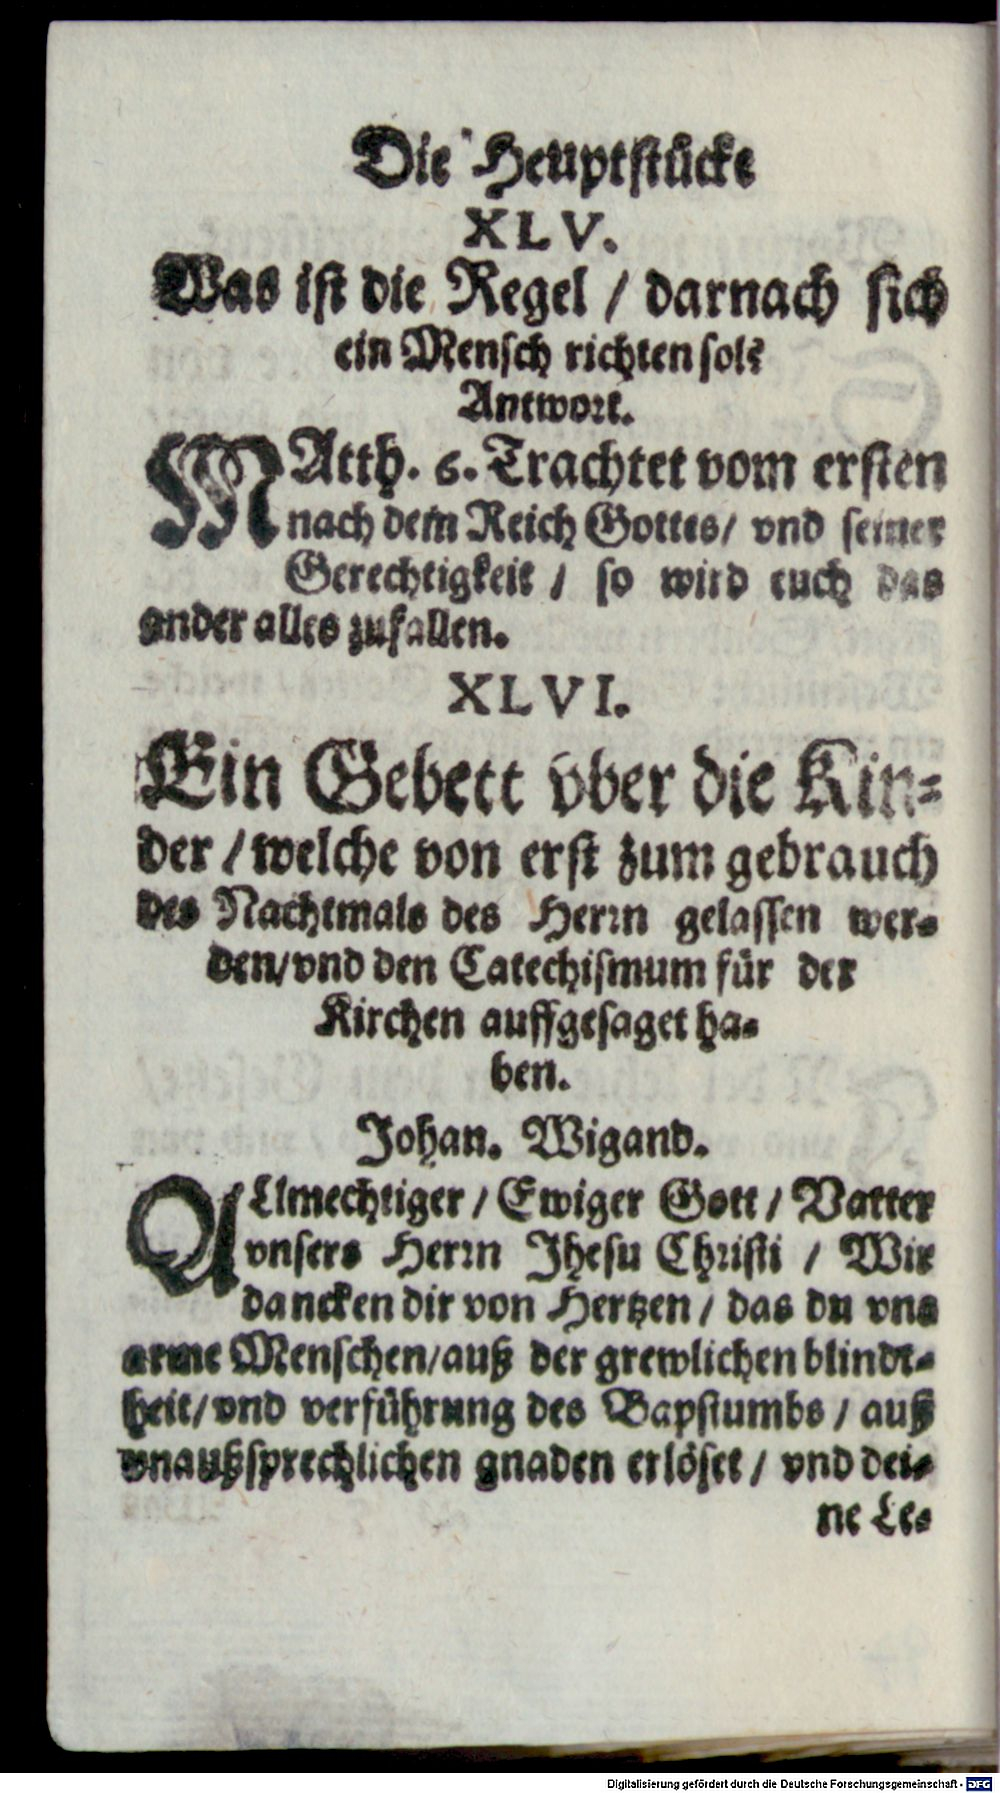 Die Heuptstücke
XLV.
Was ist die Regel / darnach sich
ein Mensch richten sol?
Antwort.
MAtth. 6. Trachtet vom ersten
nach dem Reich Gottes / vnd seiner
Gerechtigkeit / so wird euch das
ander alles zufallen.
XLVI.
Ein Gebett vber die Kin-
der / welche von erst zum gebrauch
des Nachtmals des Herrn gelassen wer-
den / vnd den Catechismum für der
Kirchen auffgesaget ha-
ben.
Johan. Wigand.
ALlmechtiger / Ewiger Gott / Vatter
vnsers Herrn Jhesu Christi / Wir
dancken dir von Hertzen / das du vns
arme Menschen / auß der grewlichen blindt-
heit / vnd verführung des Bapstumbs / auß
vnaußsprechlichen gnaden erlöset / vnd dei-
ne Le-
Digitalisierung gefördert durch die Deutsche Forschungsgemeinschaft - DFG